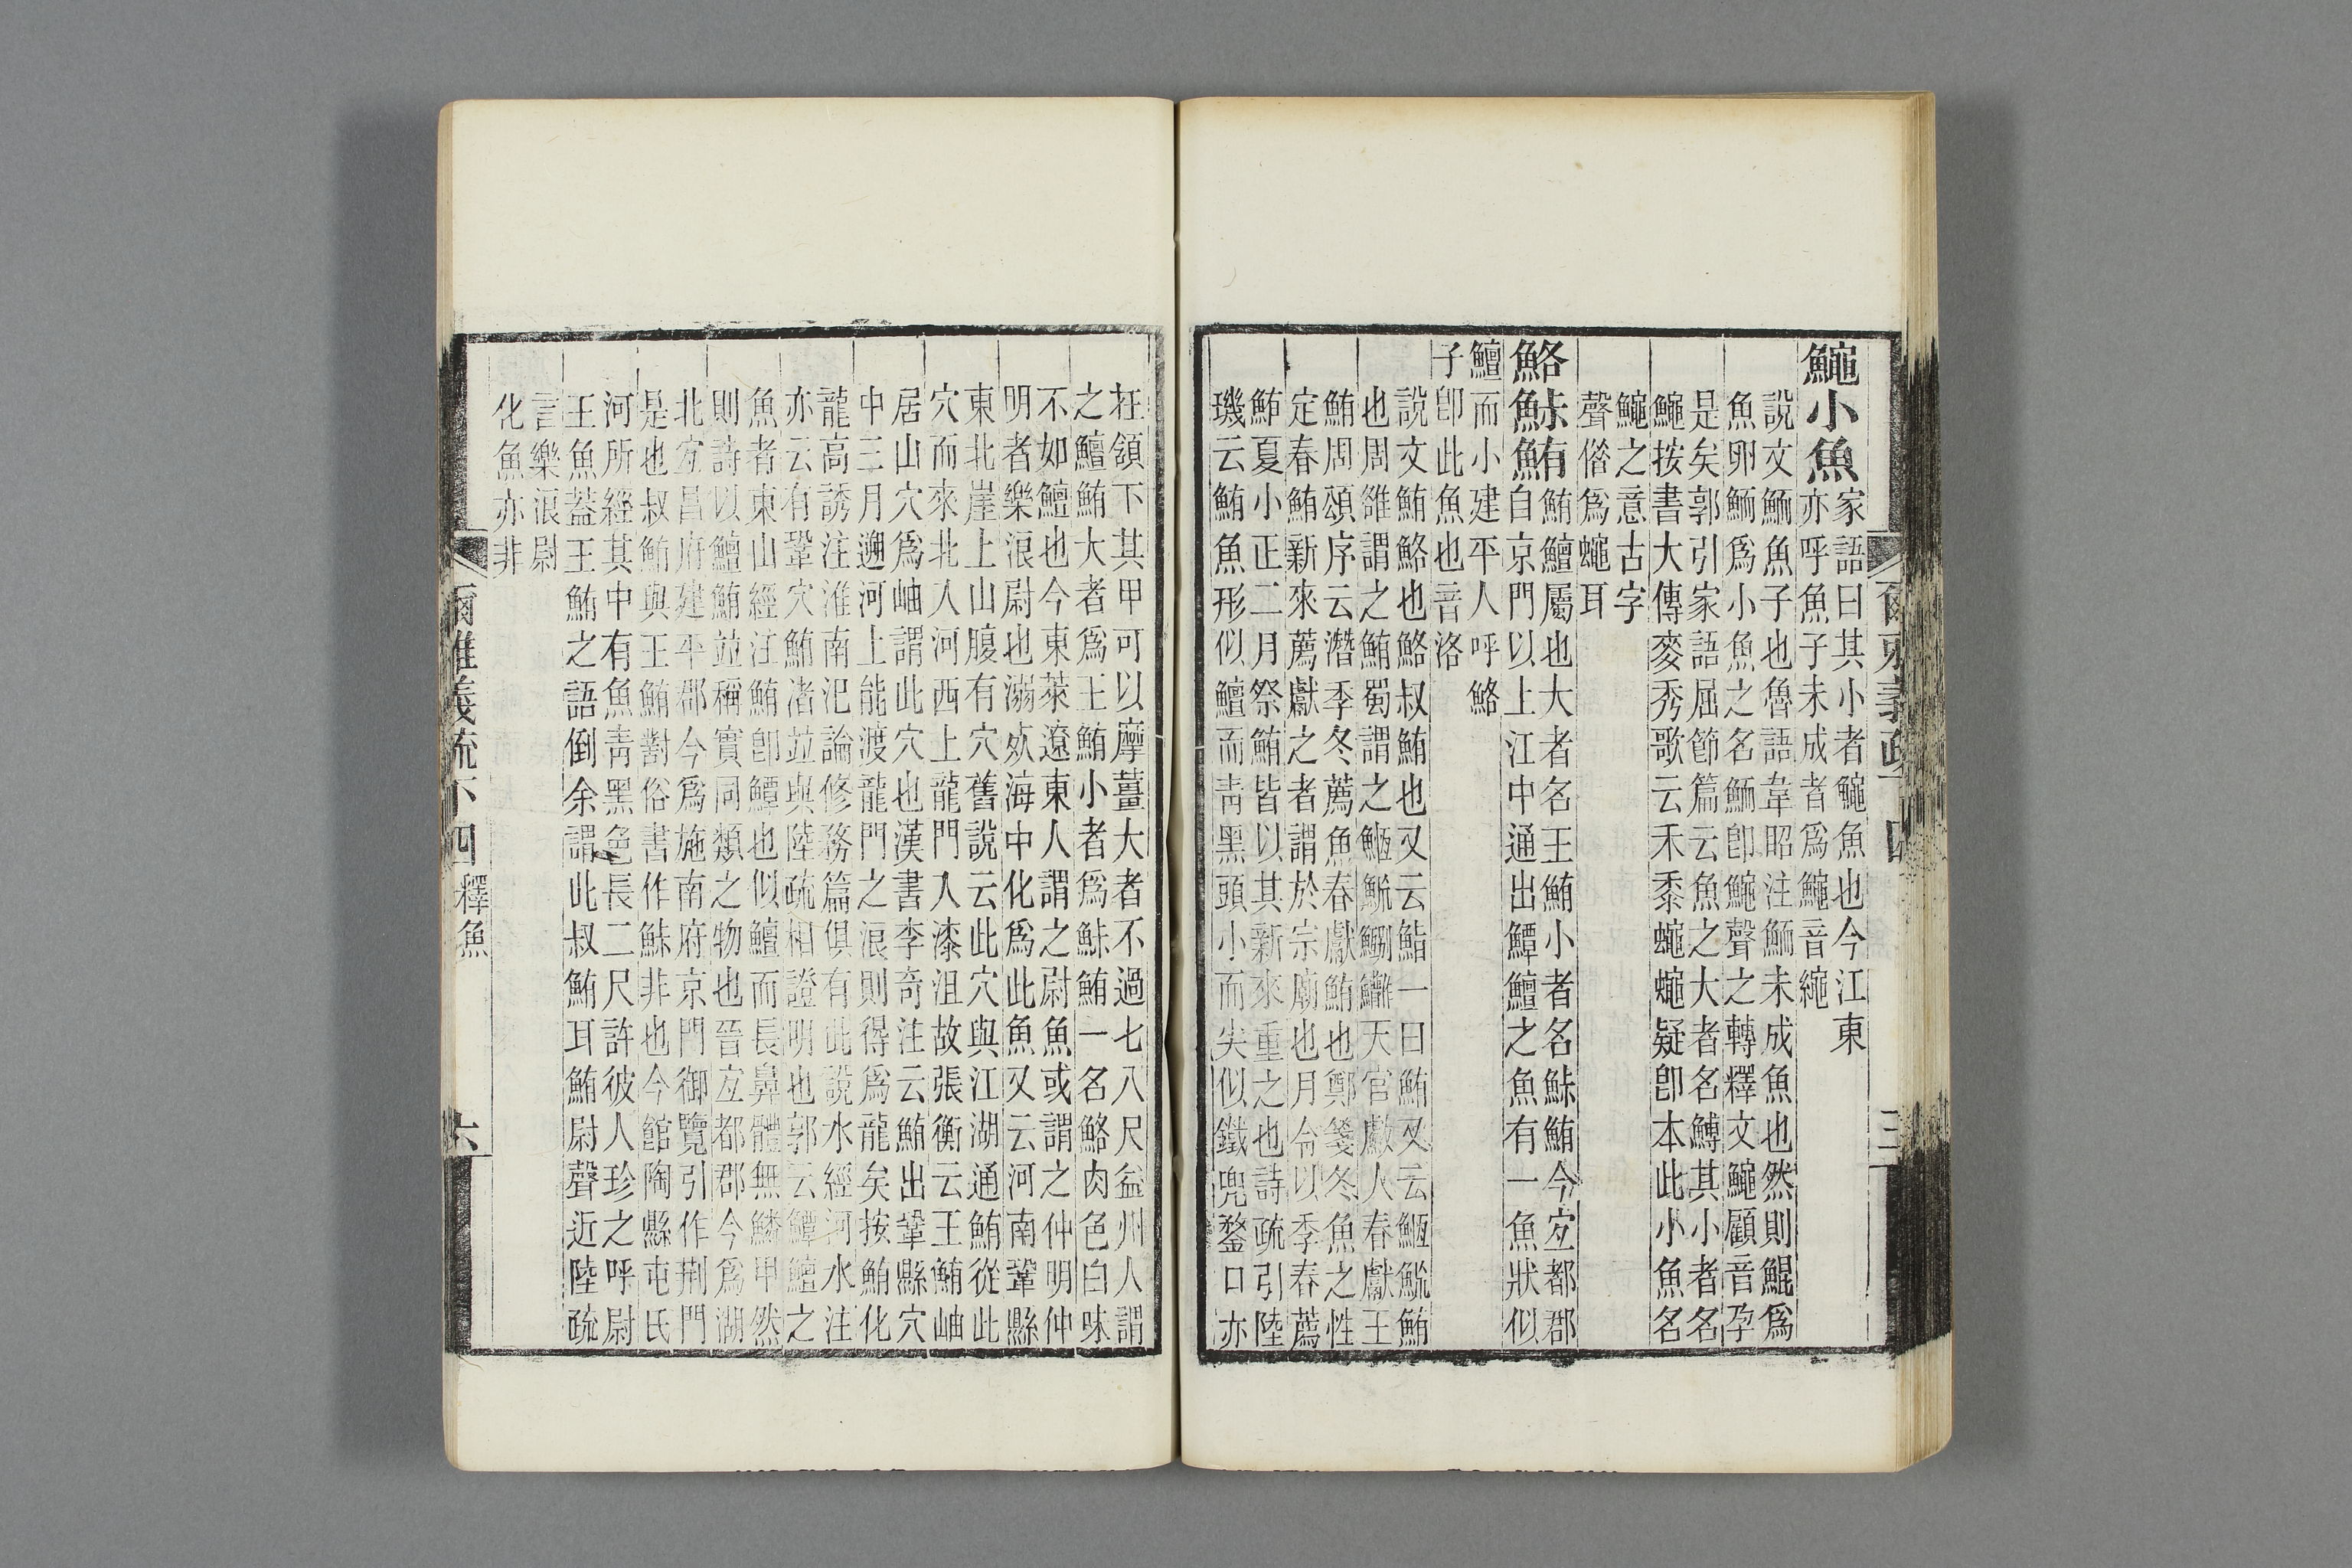 爾雅義疏下四
三
鱦小魚
家語曰其小者鱦魚也今江東
亦呼魚子未成者爲鱦音繩
說文鮞魚子也魯語韋昭注鮞未成魚也然則鯤爲
魚卵鮞爲小魚之名鮞卽鱦聲之轉釋文鱦顧音孕
是矣郭引家語屈節篇云魚之大者名鱄其小者名
鱦按書大傳麥秀歌云禾黍蠅蠅疑卽本此小魚名
鱦之意古字
聲偕爲蠅耳
鮥鮛鮪
鮪鱣屬也大者名王鮪小者名鮛鮪今宐都郡
自京門以上江中通出鱏鱣之魚有一魚狀似
鱣而小建平人呼鮥
子卽此魚也音洛
說文鮪鮥也鮥叔鮪也又云鮚一曰鮪又云䱭䲛鮪
也周雒謂之鮪蜀謂之䱭䲛 天官䱷人春獻王
鮪周頌序云潛季冬薦魚春獻鮪也鄭箋冬魚之性
定春鮪新來薦獻之者謂於宗廟也月令以季春薦
鮪夏小正二月祭鮪皆以其新來重之也詩疏引陸
璣云鮪魚形似鱣而靑黑頭小而尖似鐵兜鍪口亦
在頷下其甲可以摩薑大者不過七八尺益州人謂
之鱣鮪大者爲王鮪小者爲鮛鮪一名鮥肉色白味
不如鱣也今東萊遼東人謂之尉魚或謂之仲明仲
明者樂浪尉也溺死海中化爲此魚又云河南鞏縣
東北崖上山腹有穴舊說云此穴與江湖通鮪從此
穴而來北入河西上龍門入漆沮故張衡云王鮪岫
居山穴爲岫謂此穴也漢書李奇注云鮪出鞏縣穴
中三月遡河上能渡龍門之浪則得爲龍矣按鮪化
龍高誘注淮南氾論修務篇俱有此說水經河水注
亦云有鞏穴鮪渚竝與陸疏相證明也郭云鱏鱣之
魚者東山經注鮪卽鱏也似鱣而長鼻體無鱗甲然
則詩以鱣鮪竝稱實同類之物也晉宐都郡今爲湖
北宐昌府建平郡今爲施南府京門御覽引作荆門
是也叔鮪與王鮪對俗書作鮛非也今館陶縣屯氏
河所經其中有魚靑黑色長二尺許彼人珍之呼尉
王魚蓋王鮪之語倒余謂此叔鮪耳鮪尉聲近陸疏
言樂浪尉
化魚亦非
爾雅義疏下四 釋魚
六